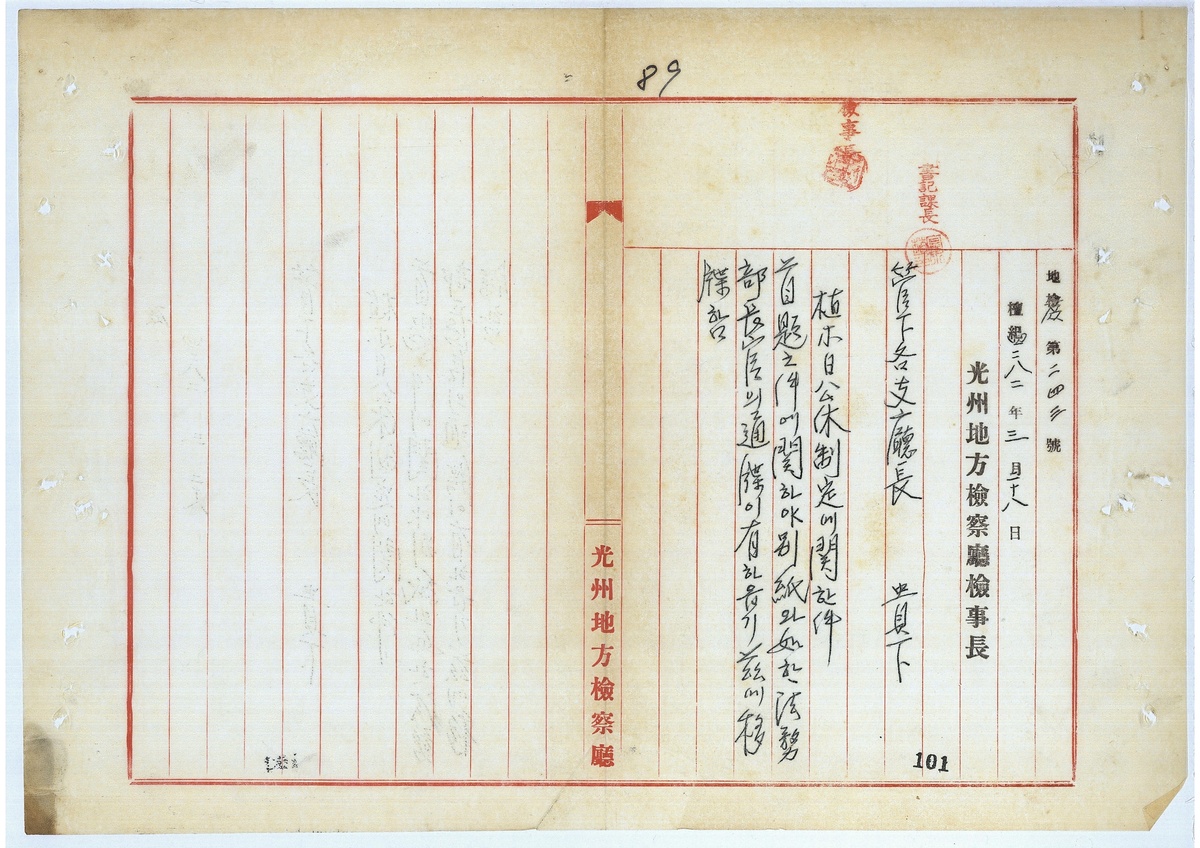 89
檢事長
書記課長
地檢 第二四三號
檀紀四二八二年三月十八日
光州地方檢察廳檢事長
管下各支廳長 貴下
植木日公休制定에關한件
首題之件에關하야別紙와如한法務
部長官의通牒이有하음기玆에移
牒함
光州地方檢察廳
101